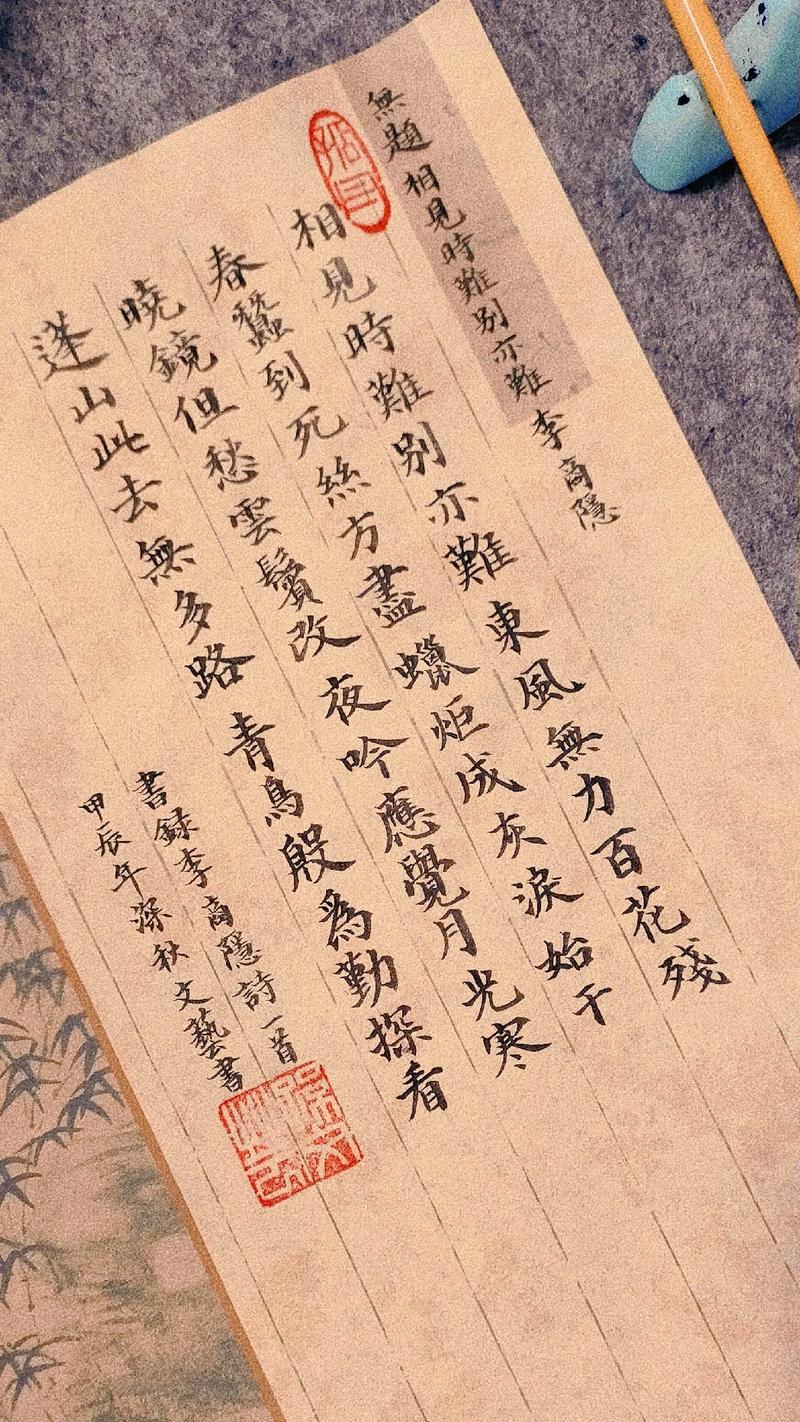 無題 相見時難別亦難 李商隱
相見時難別亦難 東風無力百花殘
春蠶到死絲方盡 蠟炬成灰淚始干
曉鏡但愁雲鬢改 夜吟應覺月光寒
蓬山此去無多路 青鳥殷爲勤探看
書録李商隱詩一首
甲辰年深秋文藝書